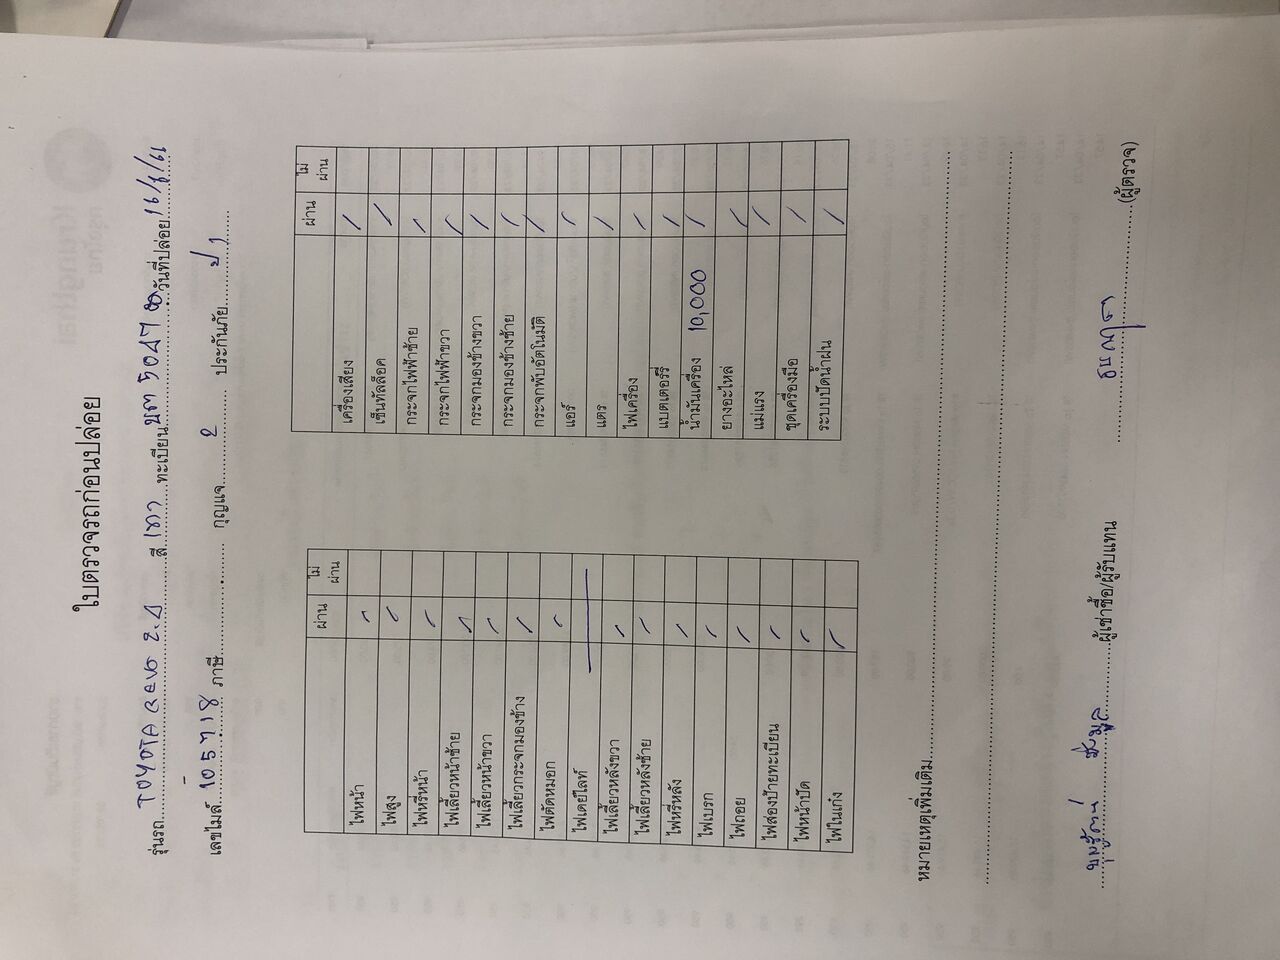 ใบตรวจรถก่อนปล่อย
รุ่นรถ TOYOTA REVO 2.4 สี เทา ทะเบียน วันที่ปล่อย
เลขไมล์ 105718 ภาษี กุญแจ 2 ประกันภัย ป1
ผ่าน ไม่ผ่าน
ไฟหน้า /
ไฟสูง /
ไฟหรี่หน้า /
ไฟเลี้ยวหน้าซ้าย /
ไฟเลี้ยวหน้าขวา /
ไฟเลี้ยวกระจกมองข้าง /
ไฟตัดหมอก /
ไฟเดย์ไลท์
ไฟเลี้ยวหลังขวา /
ไฟเลี้ยวหลังซ้าย /
ไฟหรี่หลัง /
ไฟเบรก /
ไฟถอย /
ไฟส่องป้ายทะเบียน /
ไฟหน้าปัด /
ไฟในเก๋ง /
ผ่าน ไม่ผ่าน
เครื่องเสียง /
เซ็นทัลล็อค /
กระจกไฟฟ้าซ้าย /
กระจกไฟฟ้าขวา /
กระจกมองข้างขวา /
กระจกมองข้างซ้าย /
กระจกพับอัตโนมัติ /
แอร์ /
แตร /
ไฟเครื่อง /
แบตเตอร์รี่ /
น้ำมันเครื่อง 10,000 /
ยางอะไหล่ /
แม่แรง /
ชุดเครื่องมือ /
ระบบปัดน้ำฝน /
หมายเหตุเพิ่มเติม
ผู้เช่าซื้อ/ผู้รับแทน (ผู้ตรวจ)